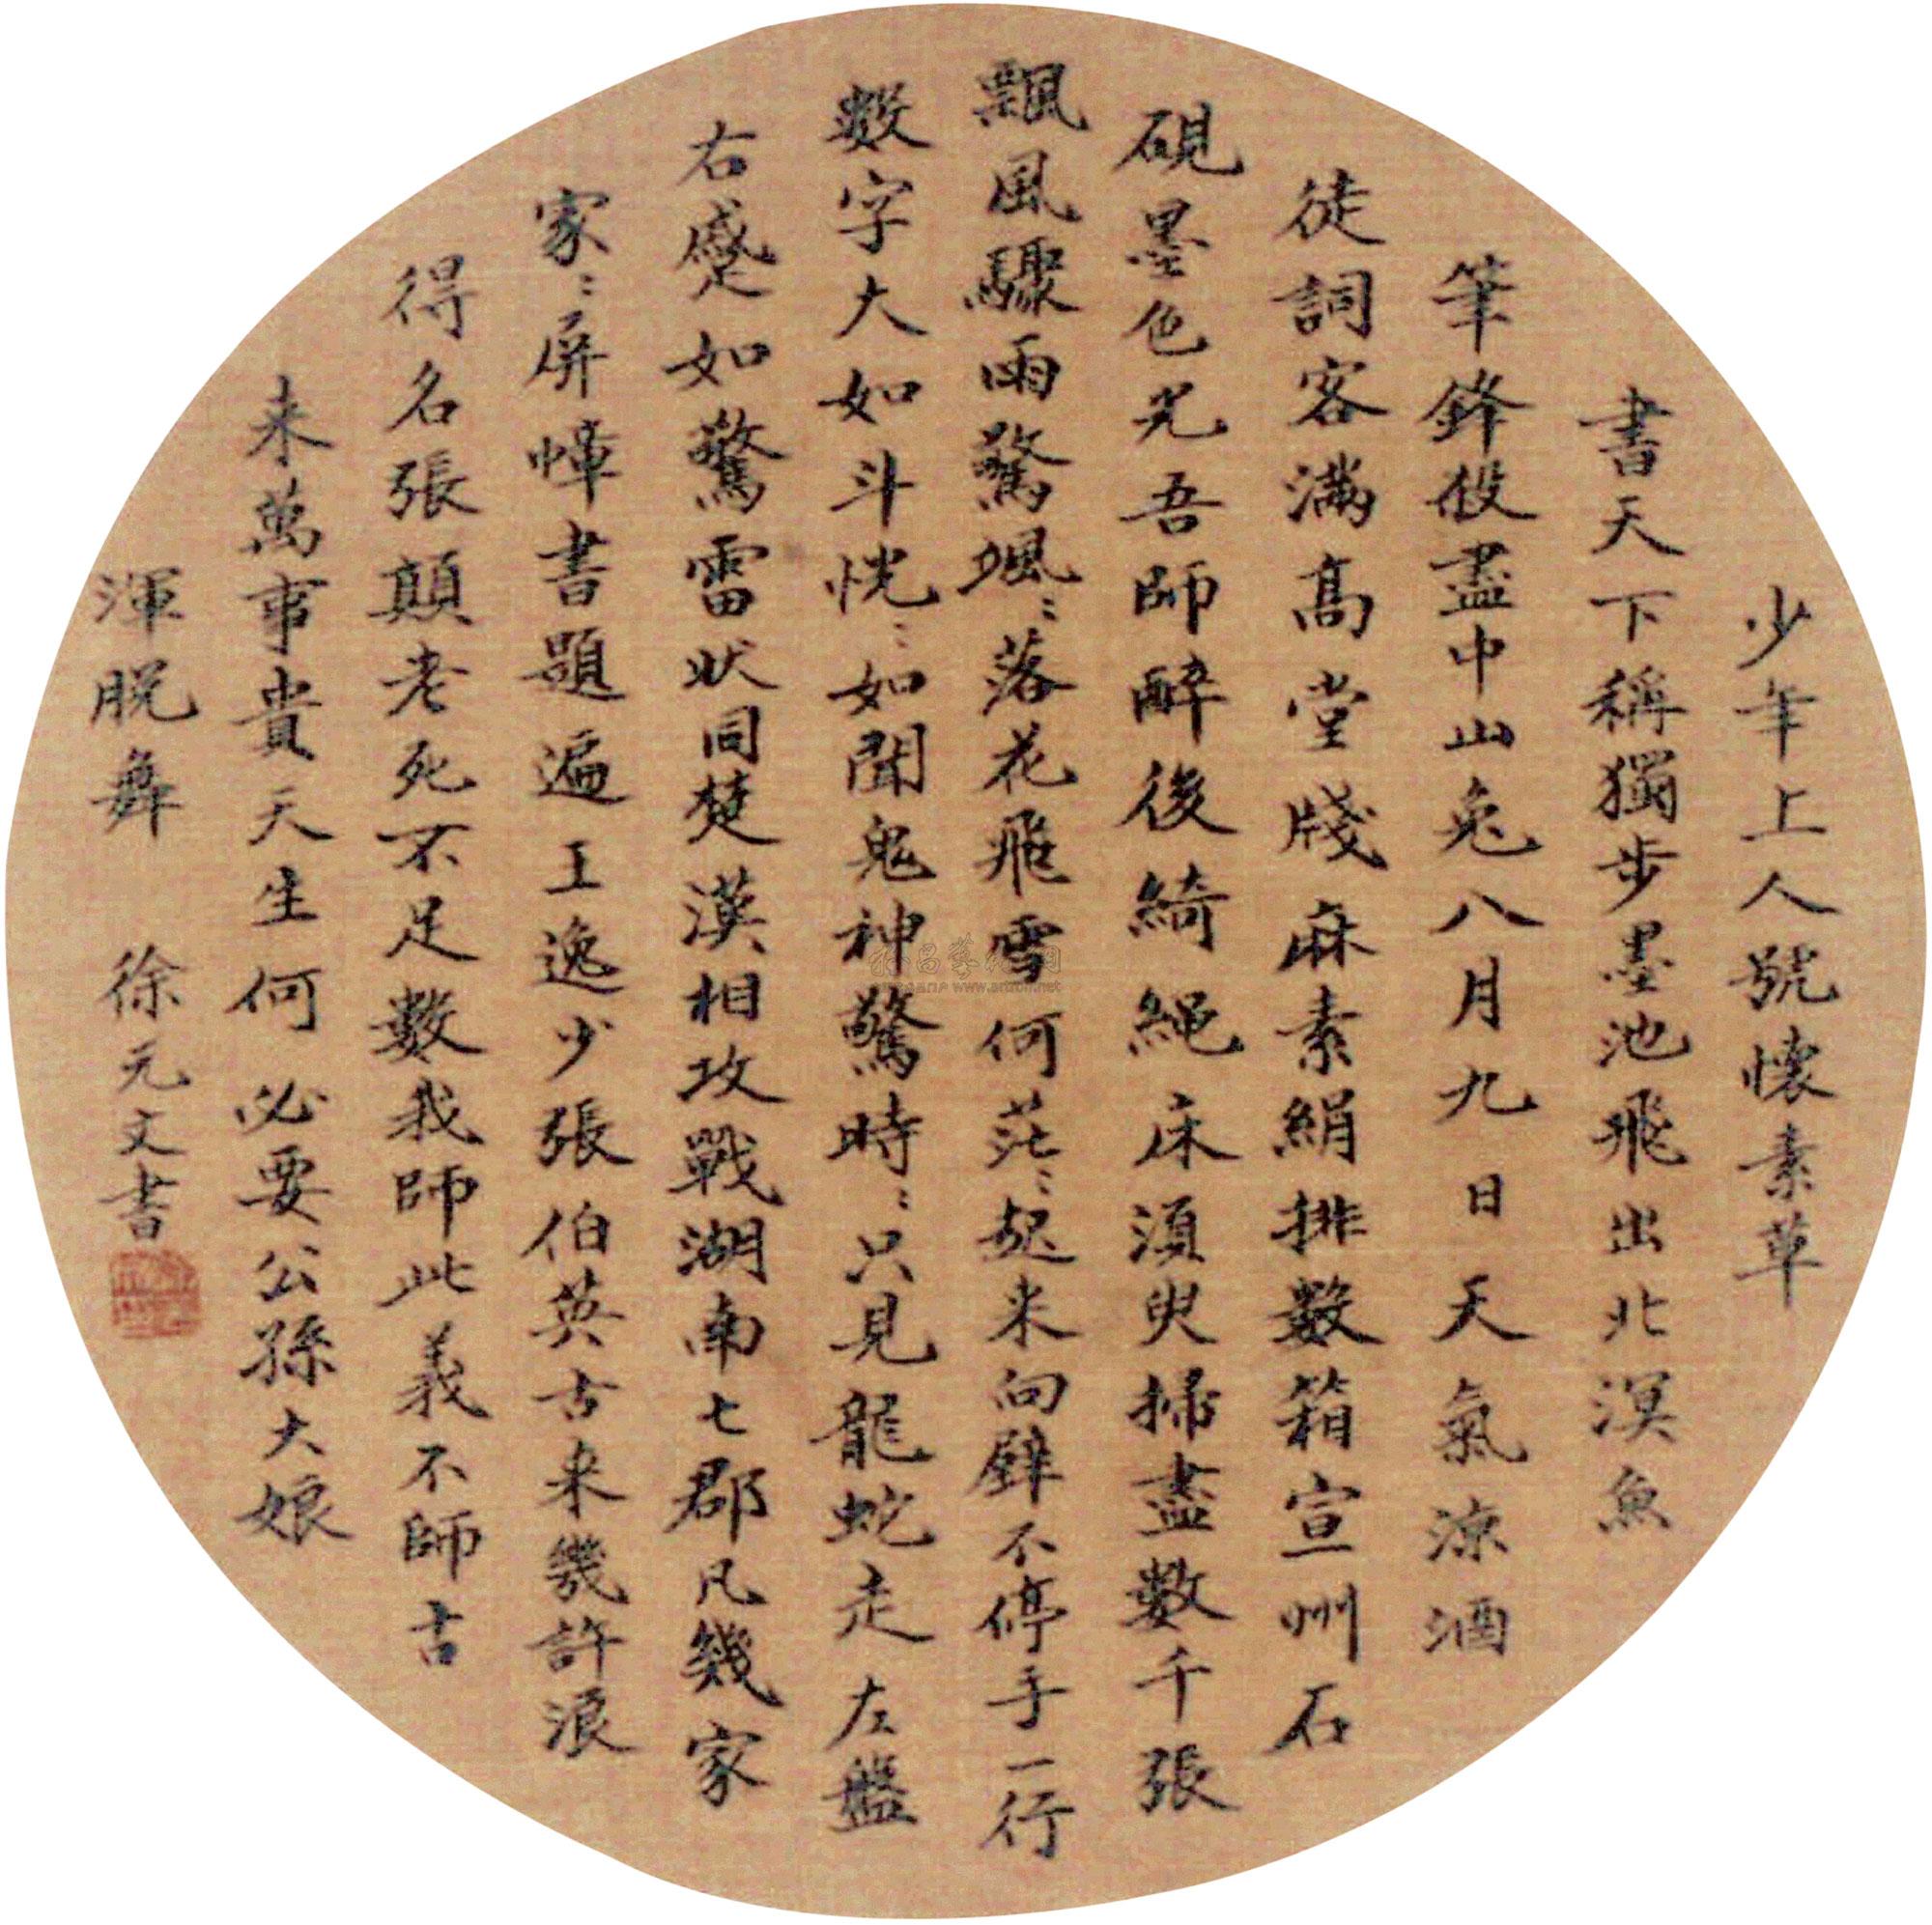 少年上人號懷素草
書天下稱獨步墨池飛出北溟魚
筆鋒殺盡中山兔八月九日天氣涼酒
徒詞客滿高堂牋麻素絹排數箱宣州石
硯墨色光吾師醉後綺繩床須臾掃盡數千張
飄風驟雨驚颯〻落花飛雪何茫〻起来向壁不停手一行
數字大如斗恍〻如聞鬼神驚時〻只見龍蛇走左盤
右蹙如驚雷狀同楚漢相攻戰湖南七郡凡幾家
家〻屏幛書題遍王逸少張伯英古来幾許浪
得名張顛老死不足數我師此義不師古
来萬事貴天生何必要公孫大娘
渾脫舞 徐元文書
www.artxun.net